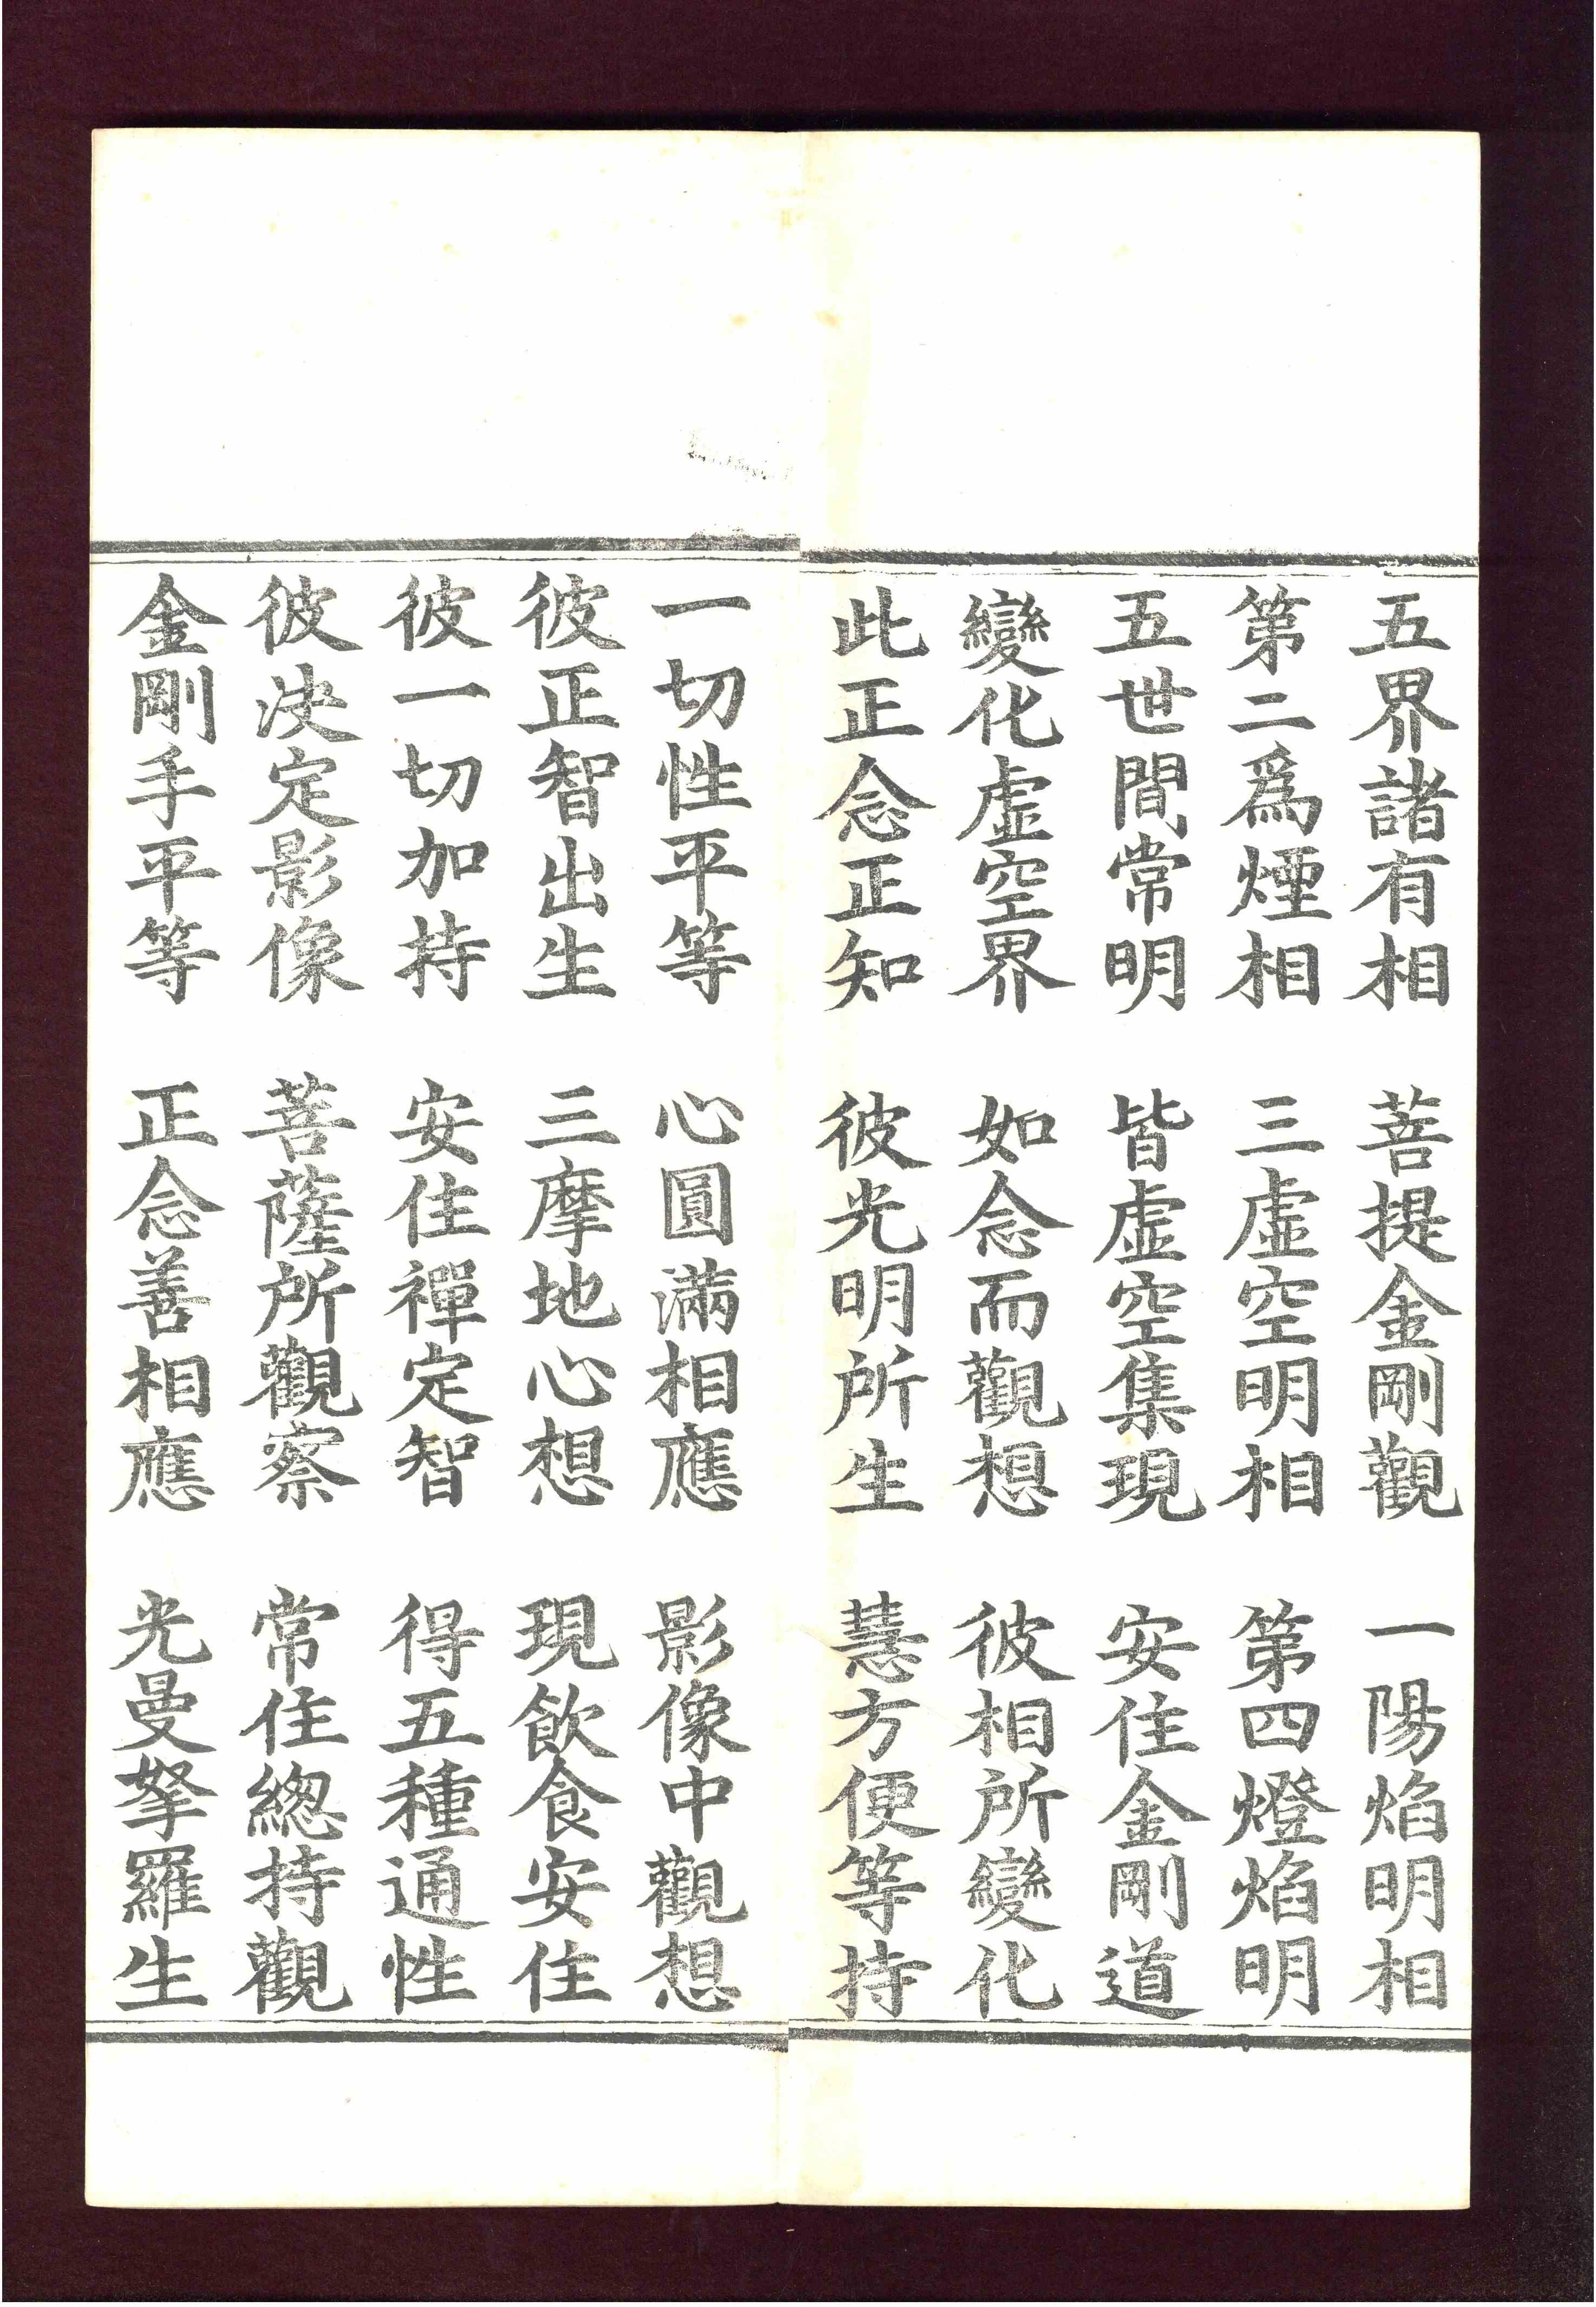 五界諸有相　菩提金剛觀　一陽焰明相
第二爲煙相　三虛空明相　第四燈焰明
五世間常明　皆虛空集現　安住金剛道
變化虛空界　如念而觀想　彼相所變化
此正念正知　彼光明所生　慧方便等持
一切性平等　心圓滿相應　影像中觀想
彼正智出生　三摩地心想　現飲食安住
彼一切加持　安住禪定智　得五種通性
彼決定影像　菩薩所觀察　常住總持觀
金剛手平等　正念善相應　光曼拏羅生